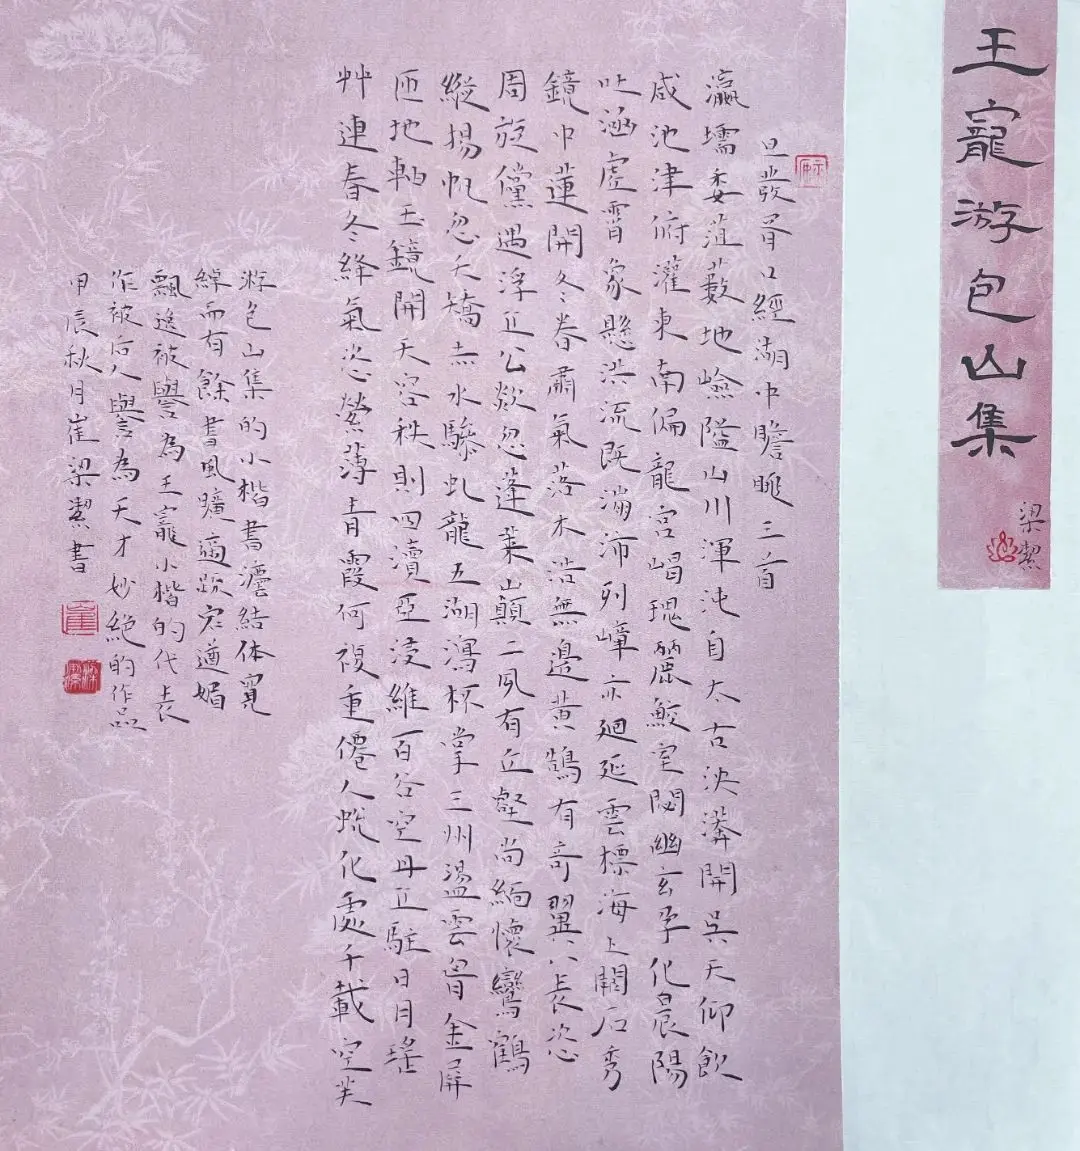 王寵游包山集
梁潔
旦發胥口經湖中瞻眺三首
瀛壖委菹藪地嶮隘山川渾沌自太古泱漭開吳天仰飲
咸池津俯灌東南偏龍宮嵑瑰麗鮫室閟幽玄孕化晨陽
吐涵虛霄象懸洪流既瀰沛列嶂亦廻延雲標海上闕石秀
鏡中蓮開冬春肅氣落木浩無邊黃鵠有奇翼八長恣
周旋儻遇浮丘公欻忽蓬萊山顛二夙有丘壑尚緬懷鸞鶴
縱揚帆忽夭矯赤水驂虬龍五湖瀉杯掌三州盪雲胥金屏
匝地軸玉鏡開天容秩則四瀆亞浸維百谷空丹丘駐日月瑤
艸連春冬絳氣恣縈薄青霞何複重僊人蛻化處千載空笑
游包山集的小楷書灋結体寬
綽而有餘書風曠適疏宕遒媚
飄逸被譽為王寵小楷的代表
作被后人譽為天才妙絕的作品
甲辰秋月崔梁潔書
崔